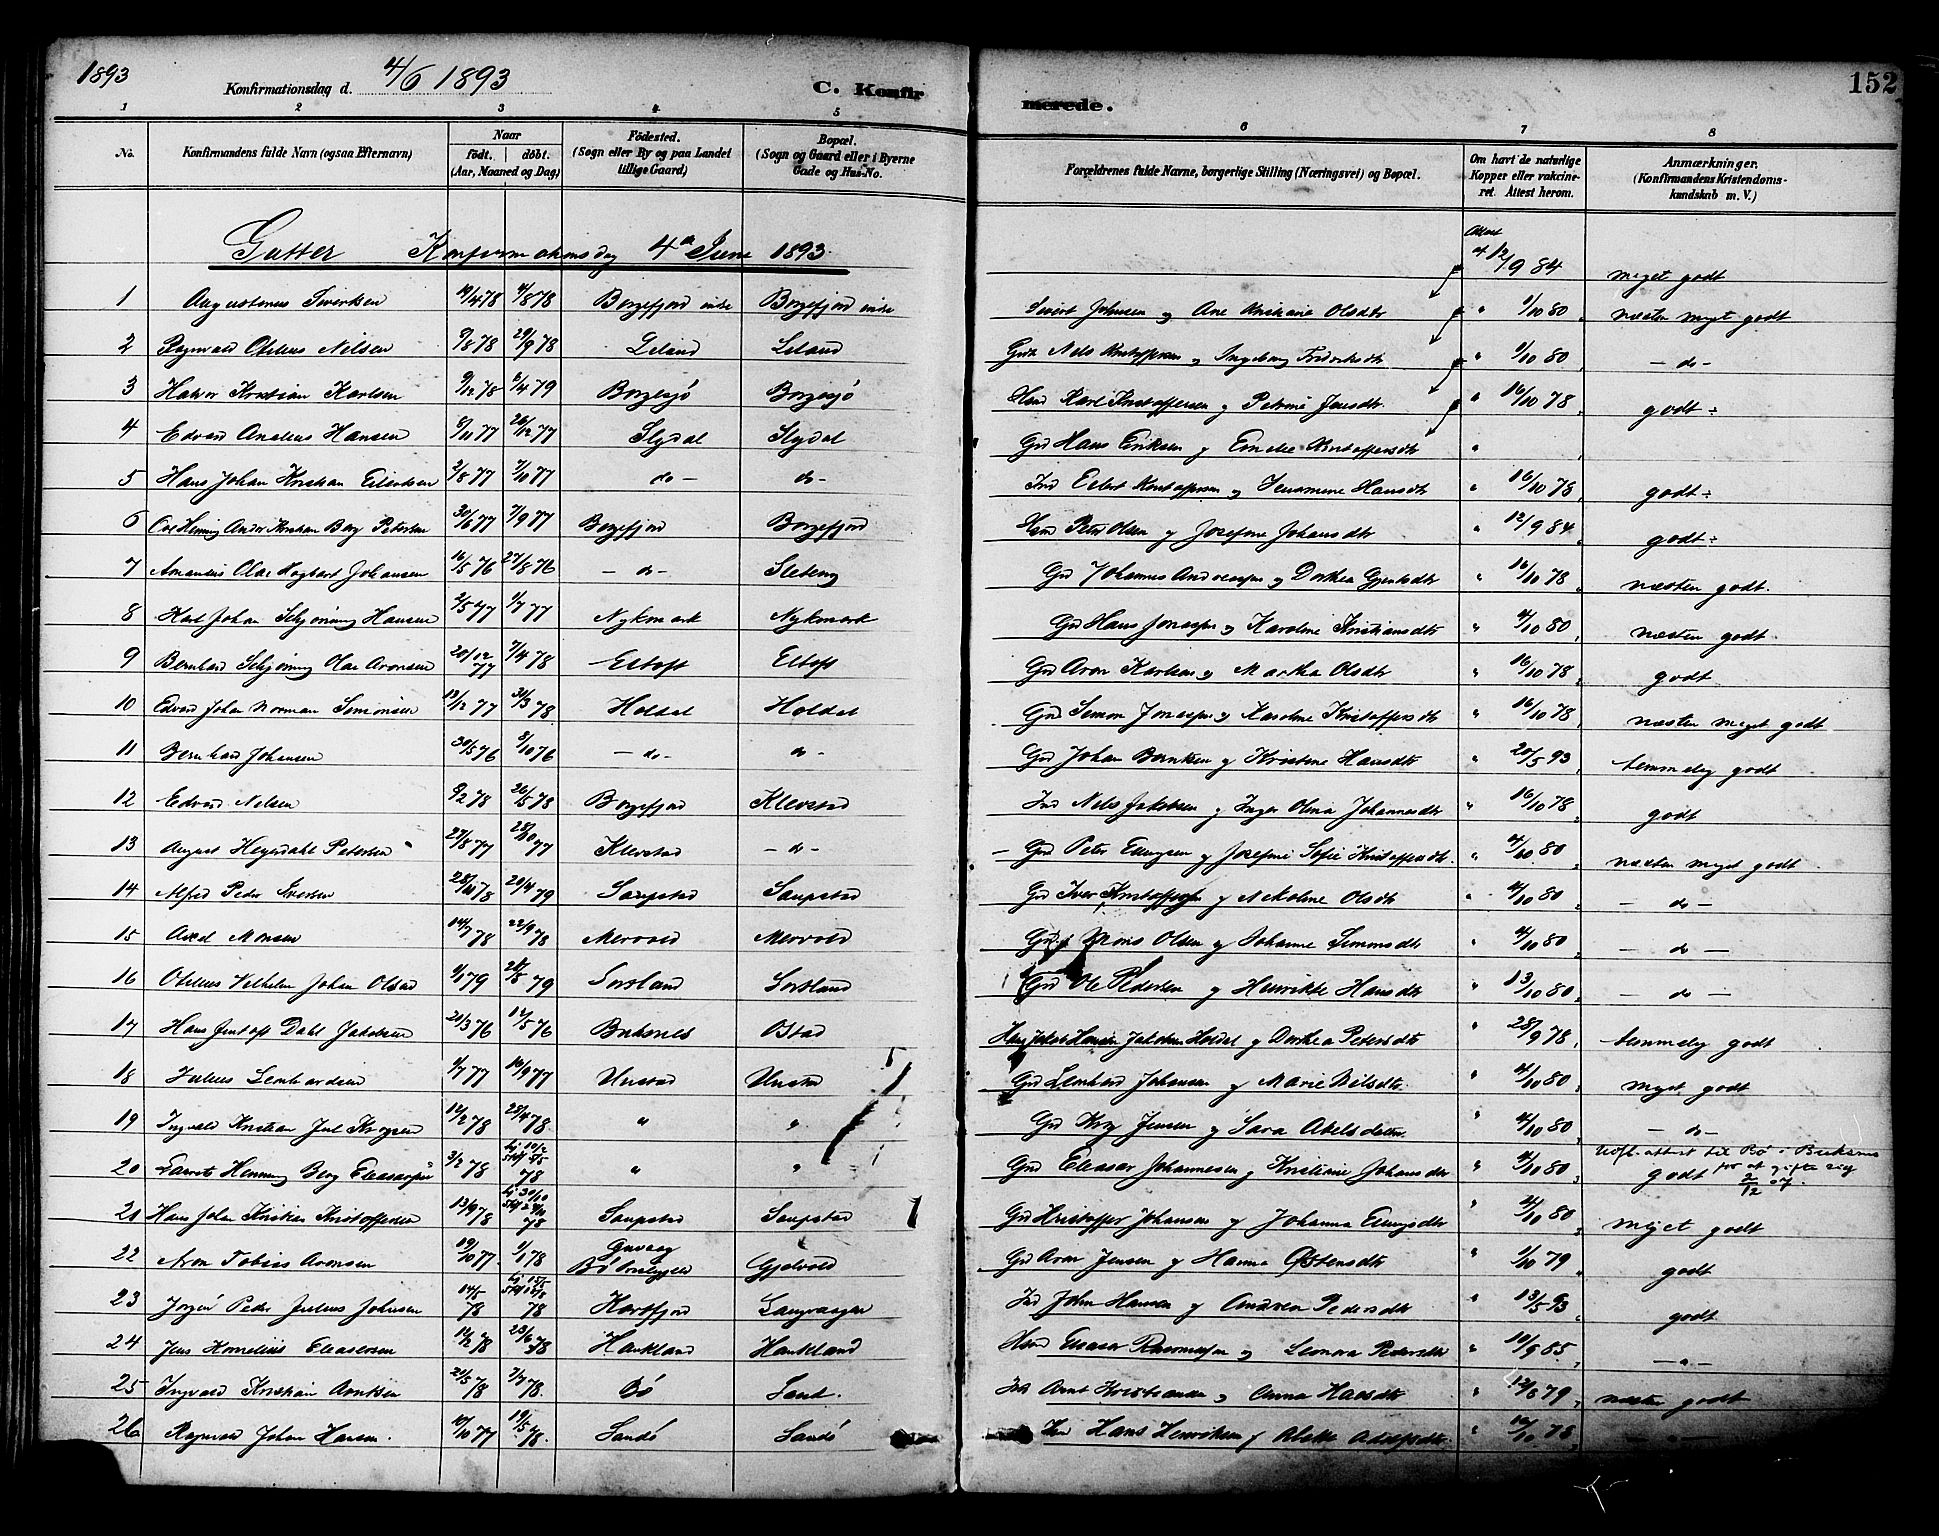 1893
Konfirmationsdag d. 4/6 1893
C. Konfirmerede.
152
1 2 3 4 5 6 7 8
No.
Konfirmandens fulde Navn (ogsaa Efternavn)
Naar
født. døbt.
(Aar, Maaned og Dag)
Fødested.
(Sogn eller By og paa Landet
tillige Gaard)
Bopæl.
(Sogn og Gaard eller i Byerne
Gade og Hus-No.
Forældrenes fulde Navne, borgerlige Stilling (Næringsvei) og Bopæl.
Om havt de naturlige
Kopper eller vakcine-
ret. Attest herom.
Anmærkninger.
(Konfirmandens Kristendoms-
kundskab m. V.)
Gutter Konfirmationsdag 4de Juni 1893
Attest af 12/9 84 meget godt
1 Augustinus Sivertsen 4/8 78 Borgefjord indre Borgefjord indre Sivert Johnsen og Ane Kristiane Olsdtr " 1/10 80 næsten meget godt
2 Ragnvald Otelius Nilsen 9/8 78 29/9 78 Leland Leland Nils Kristoffersen og Ingeborg Fredriksdtr " 1/10 80 - do -
3 Halvor Kristian Karlsen 9/12 78 6/4 79 Borgesjö Borgesjö Karl Kristoffersen og Petrine Jensdtr " 16/10 78 godt
4 Edvard Anelius Hansen 8/11 77 26/12 77 Slydal Slydal Grd Hans Eriksen og Emelie Kristoffersdtr "
5 Hans Johan Kristian Eilertsen 2/8 77 7/10 77 do - do - Ind Eilert Kristoffersen og Hansdtr " 16/10 78 godt
6 Ole Henning Andr Kristian Berg Petersen 30/6 77 7/9 77 Borgefjord Borgefjord Peter Olsen og Josefine Johansdtr " 12/9 84 godt
7 Amandus Olai Hagbart Johansen 16/5 76 27/8 76 - do - Steteng Grd Johannes Andreassen og Dorthea Gjertsdtr " 16/10 78 næsten godt.
8 Karl Johan Schjöning Hansen 2/5 77 1/7 77 Nykmark Nykmark Grd Hans Jonassen og Karoline Kristiansdtr " 4/10 80 næsten godt
9 Bernhard Schjöning Olai Aronsen 20/12 77 7/4 78 Eltoft Eltoft Grd Aron Karlsen og Martha Olsdtr " 16/10 78 godt
10 Edvard Johan Norman Simonsen 13/12 77 30/3 78 Holdal Holdal Grd Simon Jonassen og Karoline Kristoffersdtr " 16/10 78 næsten meget godt
11 Bernhard Johansen 30/5 76 8/10 76 - do - do - Grd Johan Berntsen og Kristine Hansdtr " 20/5 93 temmelig godt
12 Edvard Nilsen 9/2 78 26/5 78 Borgefjord Klevstad Ind Nils Jakobsen og Inger Olina Johannesdtr " 16/10 78 godt
13 August Heyerdahl Petersen 27/8 77 28/10 77 Klevstad - do - Grd Peter Ellingsen og Josefine Sofie Kristoffersdtr. " 4/10 80 næsten meget godt
14 Alfred Peder Iversen 28/11 78 20/4 79 Saupstad Saupstad Grd Iver Kristoffersen og Nikoline Olsdtr " 4/10 80 - do -
15 Axel Monsen 14/7 78 22/9 78 Mervold Mervold Grd Mons Olsen og Johanne Simonsdtr " 4/10 80 - do -
16 Otelius Vilhelm Johan Olsen 1/1 79 79 Sortland Sortland Grd Ole Pedersen og Henrikke Hansdtr " 13/10 80 - do -
17 Hans Jentoft Dahl Jakobsen 21/3 76 14/5 76 Buksnes Ostad Jakob Hansen Holdal og Dorthea Pedersdtr " 28/9 78 temmelig godt
18 Julius Leonhardsen 1/7 77 16/9 77 Unstad Unstad Grd Leonhard Johansen og Marie Nilsdtr. " 4/10 80 meget godt
19 Ingvald Kristian Juel Krogsen 12/2 78 28/4 78 " " Grd Krog Jensen og Sara Abelsdatter " 4/10 80 - do -
20 Lauritz Henning Berg Eleasarsen 3/2 78 78 " " Grd Eleasar Johannesen og Kristiane Johansdtr " 4/10 80 godt Udfl. attest til Bö i Buksnes for at gifte sig 2/12 07.
21 Hans Johan Kristian Kristoffersen 13/9 78 78 Saupstad Saupstad Grd Kristoffer Johansen og Johanna Ellingsdtr " 4/10 80 meget godt
22 Aron Tobias Aronsen 19/10 77 1/1 78 Guvaag Bö Præstegjeld Gjelvold Grd Aron Jensen og Hanna Østensdtr " 1/10 79 godt
23 Jörgen Peder Julius Johnsen 14/5 78 78 Hartfjord Langvasjen Ind John Hansen og Andrea Pedersdtr " 13/5 93 godt
24 Jens Kornelius Eleasersen 14/2 78 23/6 78 Haukland Haukland Eleasar Rasmussen og Leonora Pedersdtr " 10/9 85 - " -
25 Ingvald Kristian Arntsen 21/5 78 7/7 78 Bö Sand. Ind Arnt Kristiansen og Anna Hansdtr " 12/6 79 næsten godt
26 Ragnvald Johan Hansen. 10/10 77 19/5 78. Sandö Sandö Ind Hans Henriksen og Adolfsdtr " 16/10 78 - " -